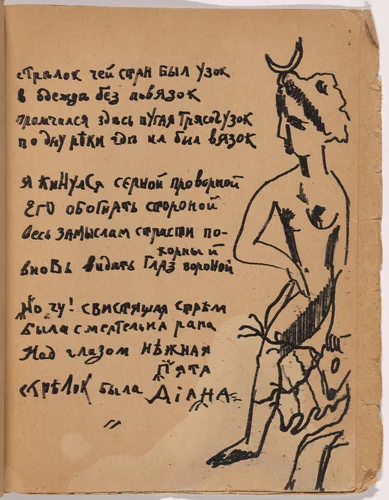 стрѣлок чей стан был узок
в одежда без повязок
промчался здѣсь пугая трясогузок
по дну рѣки гдѣ ил был вязок
я кинулся серной проворной
его обогнать стороной
весь замыслам страсти по-
корный
вновь видать глаз вороной
Но чу! свистящая стрѣл
была смертельна рана
Над глазом нѣжная
пята
стрѣлок была Дiана